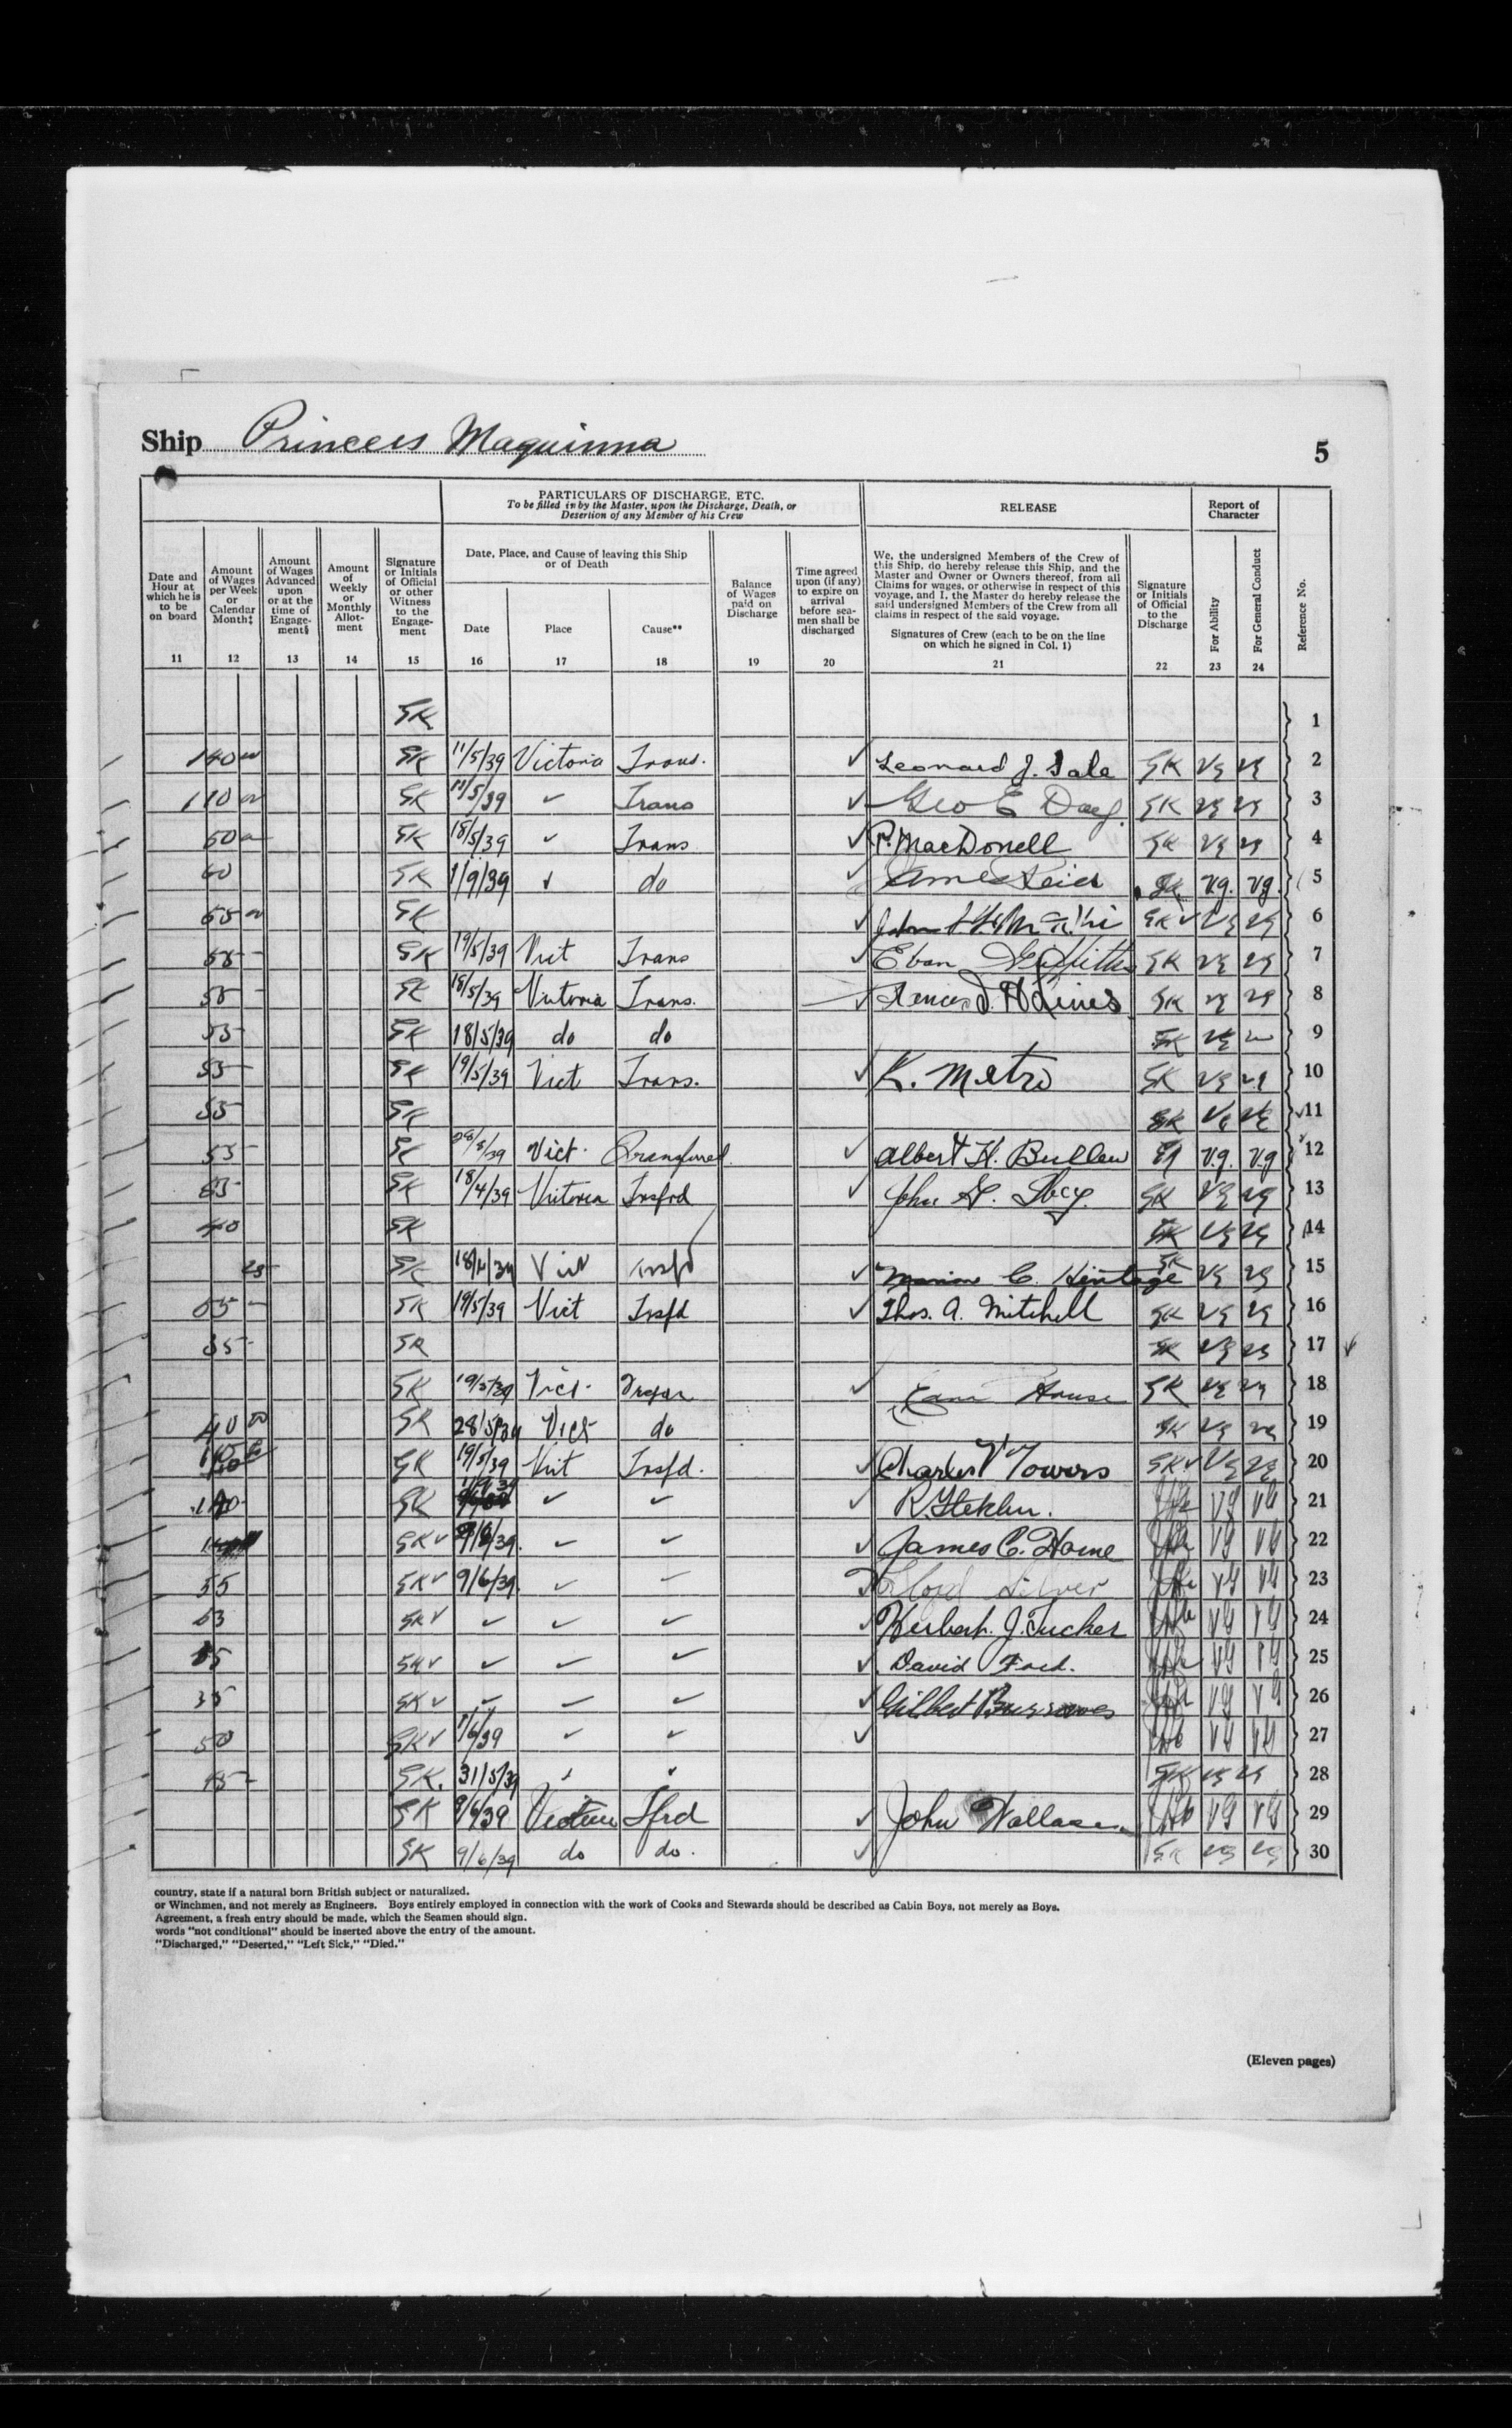 Ship Princess Maquinna
5
PARTICULARS OF DISCHARGE, ETC.
To be filled in by the Master, upon the Discharge, Death, or
Desertion of any Member of his Crew
RELEASE
Report of
Character
Date and
Hour at
which he is
to be
on board
Amount
of Wages
per Week
or
Calendar
Month‡
Amount
of Wages
Advanced
upon
or at the
time of
Engage-
ment§
Amount
of
Weekly
or
Monthly
Allot-
ment
Signature
or Initials
of Official
or other
Witness
to the
Engage-
ment
Date, Place, and Cause of leaving this Ship
or of Death
Date
Place
Cause**
Balance
of Wages
paid on
Discharge
Time agreed
upon (if any)
to expire on
arrival
before sea-
men shall be
discharged
We, the undersigned Members of the Crew of
this Ship, do hereby release this Ship, and the
Master and Owner or Owners thereof, from all
Claims for wages, or otherwise in respect of this
voyage, and I, the Master do hereby release the
said undersigned Members of the Crew from all
claims in respect of the said voyage.
Signatures of Crew (each to be on the line
on which he signed in Col. 1)
Signature
or Initials
of Official
to the
Discharge
For Ability
For General Conduct
Reference No.
11 12 13 14 15 16 17 18 19 20 21 22 23 24
GK 1
140 GK 11/5/39 Victoria Trans. ✓ Leonard J. Sale GK vg vg 2
110 GK 11/5/39 ✓ Trans ✓ Geo E GK vg vg 3
60 GK 18/5/39 ✓ Trans ✓ MacDonell GK vg vg 4
60 GK 1/9/39 ✓ do ✓ James GK vg. vg. 5
55 GK ✓ John GK ✓ vg vg 6
55 - GK 19/5/39 Vict Trans ✓ Eban Griffiths GK vg vg 7
55 - GK 18/5/39 Victoria Trans. ✓ GK vg vg 8
55 - GK 18/5/39 do do GK vg 9
55 - GK 19/5/39 Vict Trans. ✓ K. Metro GK vg vg 10
55 - GK GK vg vg ✓ 11
55 - GK Vict. Transferred ✓ Albert H. Bullen vg. vg 12
GK 18/4/39 Victoria Trsfrd ✓ John GK vg vg 13
40 GK GK vg vg 14
25 GK 18/4/39 Vict ✓ C. Heritage GK vg vg 15
55 - GK 19/5/39 Vict Trsfd ✓ Thos. A. Mitchell GK vg vg 16
35 - GK GK vg vg 17 ✓
GK 19/5/39 Vict. ✓ House GK vg vg 18
40 GK 28/5/39 Vict do GK vg vg 19
GK 19/5/39 Vict Trsfd. ✓ Charles V Towers GK ✓ vg vg 20
GK ✓ ✓ ✓ R. VG VG 21
GK ✓ 9/6/39. ✓ ✓ ✓ James C. Horne VG VG 22
55 GK ✓ 9/6/39. ✓ ✓ Silver VG VG 23
GK ✓ ✓ ✓ ✓ ✓ Herbert. J. Tucker VG VG 24
GK ✓ ✓ ✓ ✓ ✓ David Ford. VG VG 25
35 GK ✓ ✓ ✓ ✓ ✓ Gilbert Burrows VG VG 26
50 GK ✓ ✓ ✓ ✓ VG VG 27
GK. 31/5/39 ✓ ✓ GK vg vg 28
GK 9/6/39 Victoria Tfrd ✓ John Wallace VG VG 29
GK 9/6/39 do do. ✓ GK vg vg 30
country, state if a natural born British subject or naturalized.
or Winchmen, and not merely as Engineers. Boys entirely employed in connection with the work of Cooks and Stewards should be described as Cabin Boys, not merely as Boys.
Agreement, a fresh entry should be made, which the Seamen should sign.
words "not conditional" should be inserted above the entry of the amount.
"Discharged," "Deserted," "Left Sick," "Died."
(Eleven pages)